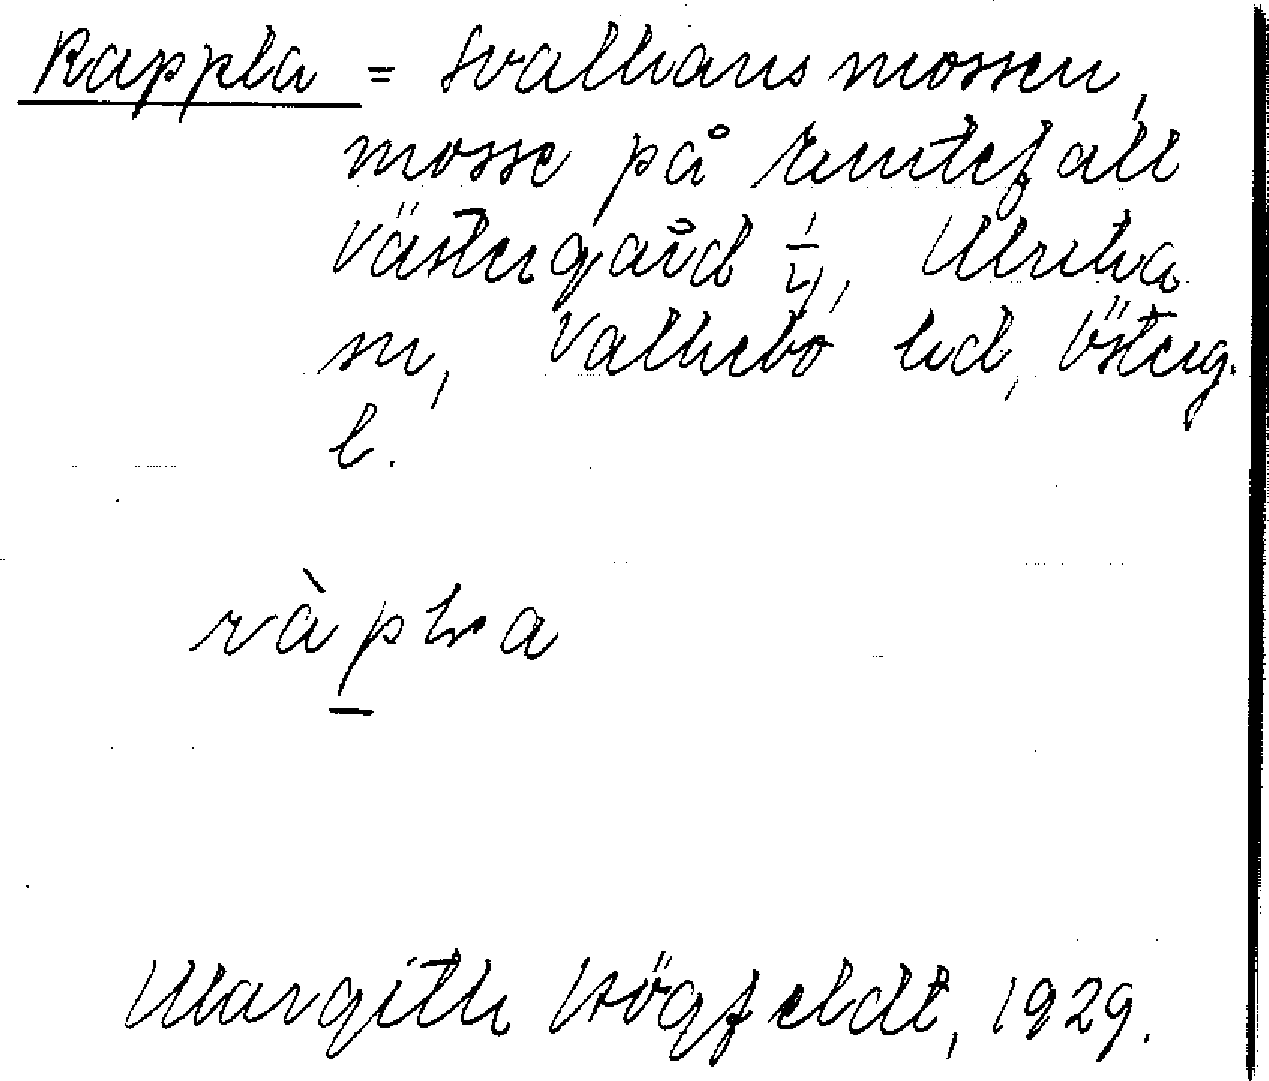 Rappla = Svalhansmossen,
mosse på Runtefall
Västergård 1/4, Ulrika
sn, Valkebo hd, Österg.
l.
ràpla
Margith Högfeldt, 1929.